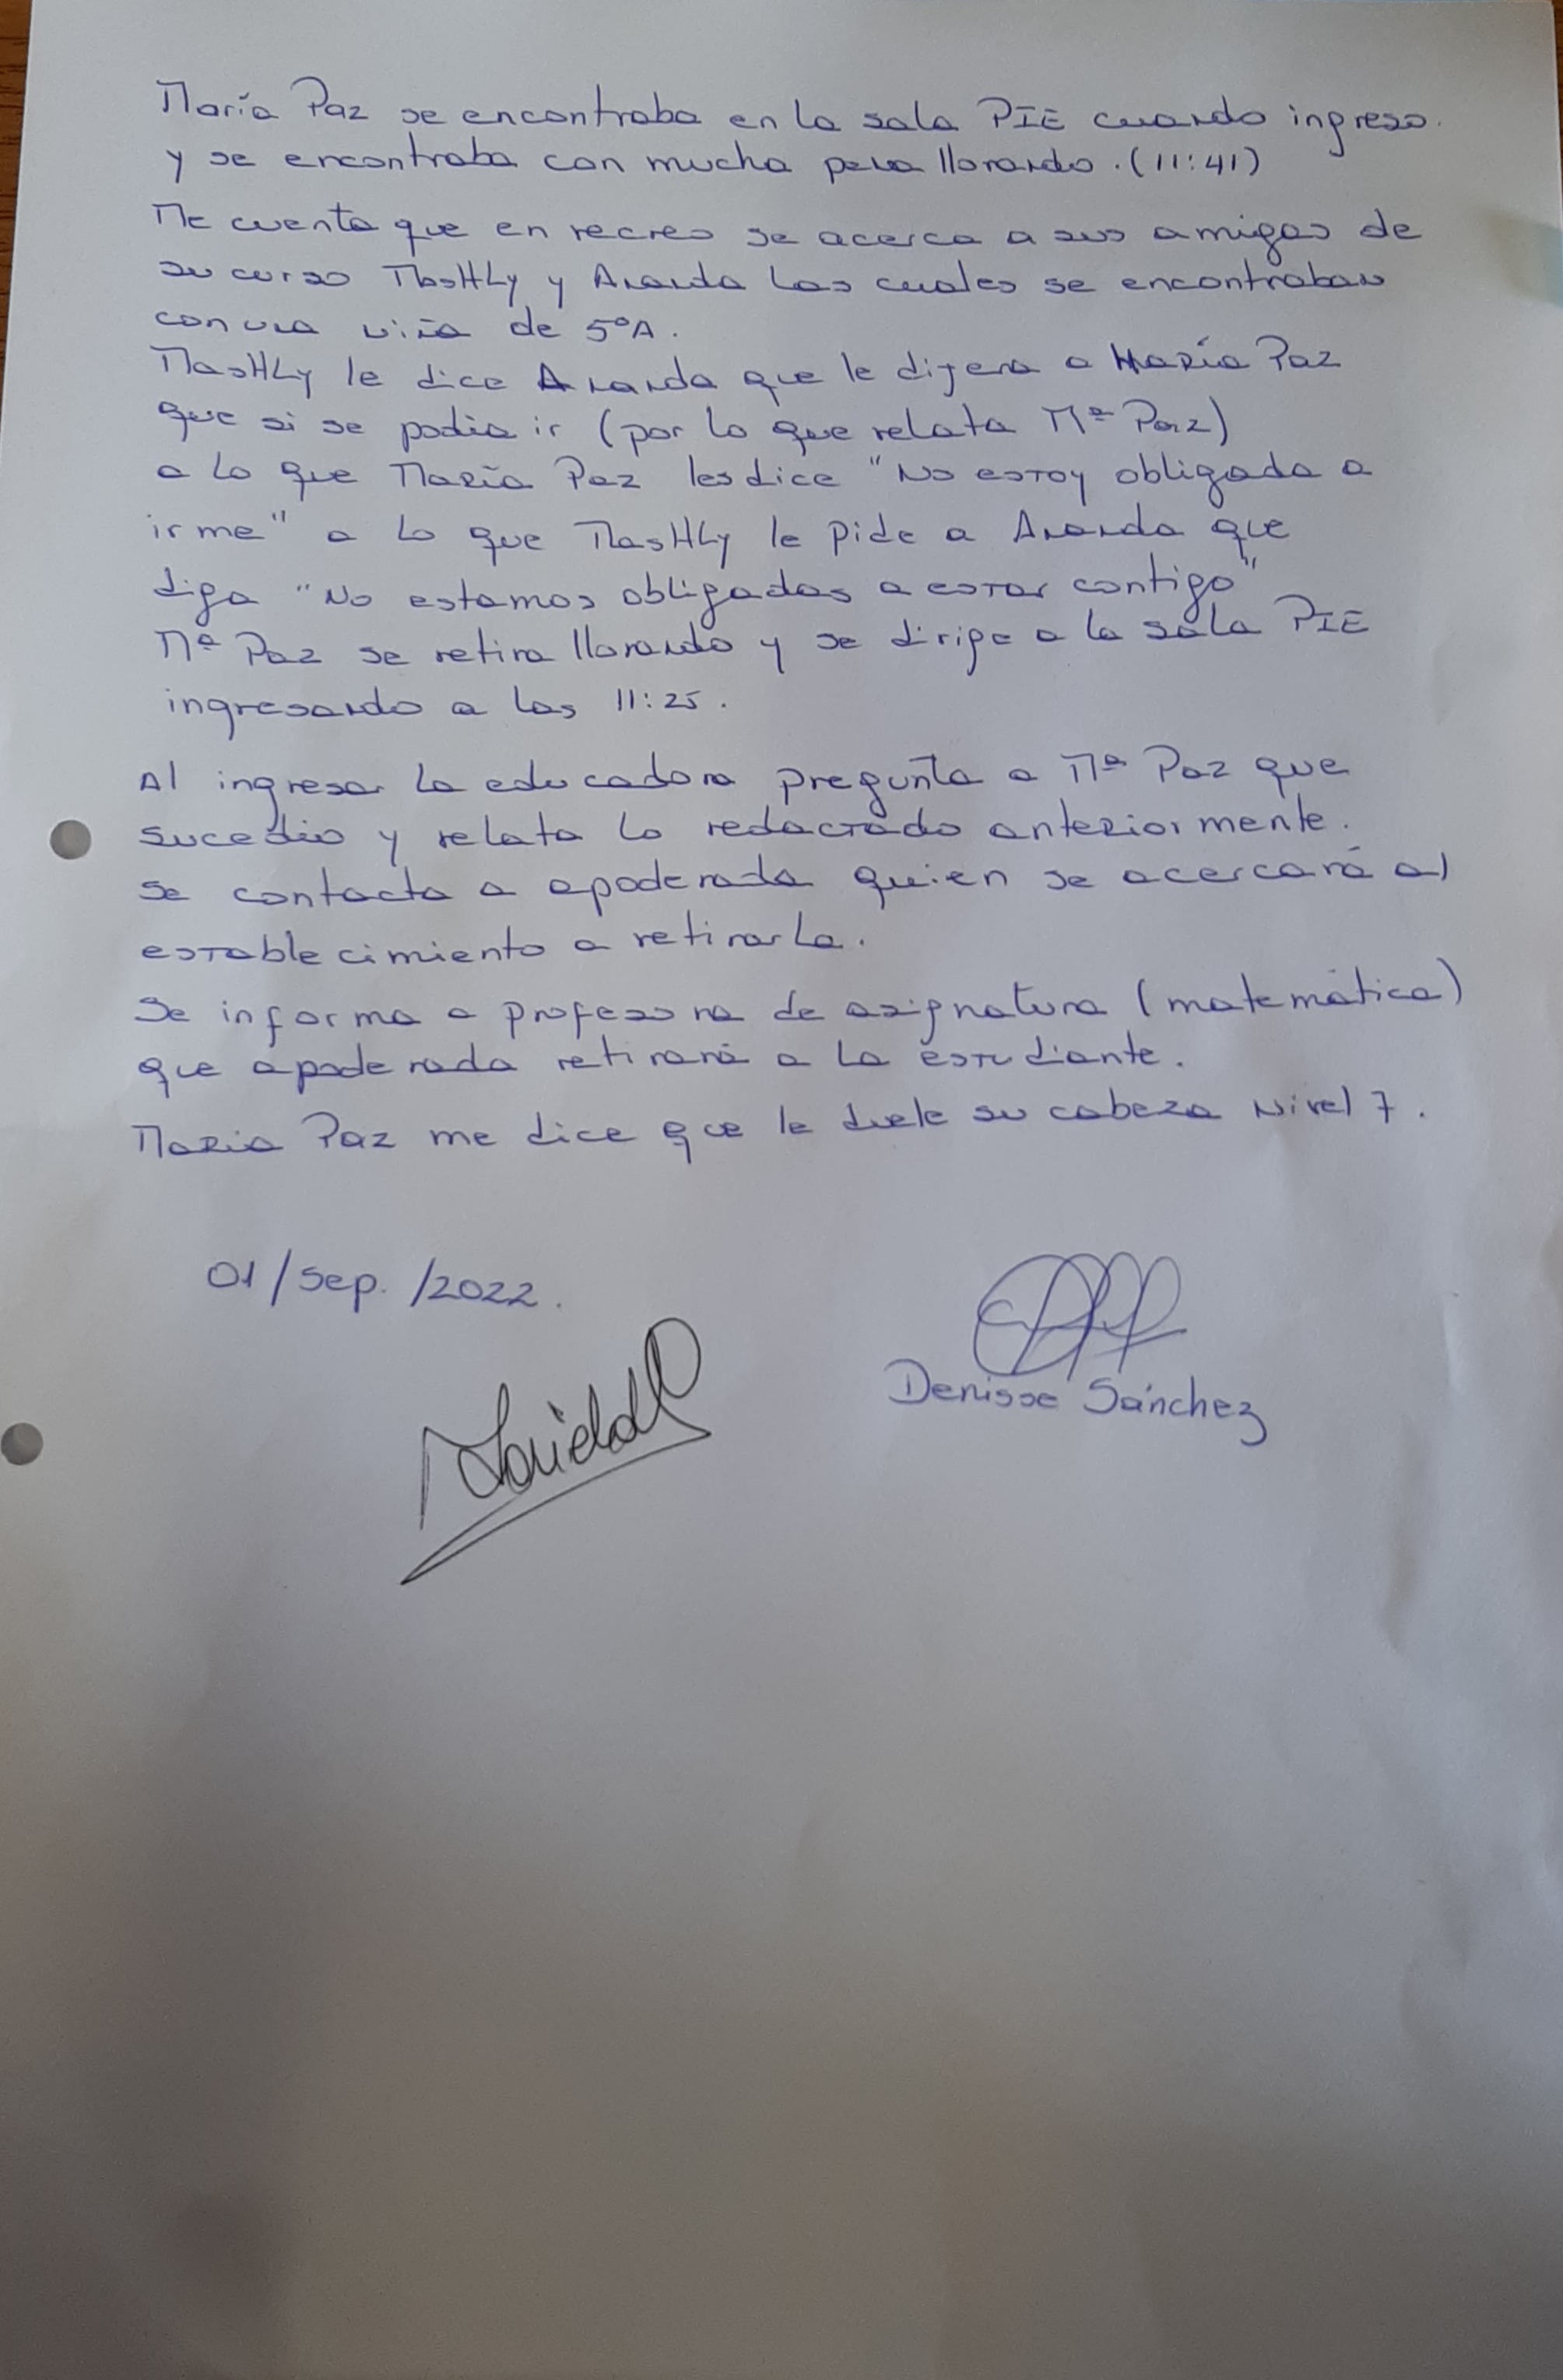 María Paz se encontraba en la sala PIE cuando ingreso.
y se encontraba con mucha pena llorando. (11:41)
Me cuenta que en recreo se acerca a sus amigas de
su curso MasHLy y Ananda las cuales se encontraban
con una niña de 5°A.
MasHLy le dice Ananda que le dijera a María Paz
que si se podia ir (por lo que relata Mª Paz)
a lo que María Paz les dice "No estoy obligada a
irme" a lo que MasHLy le pide a Ananda que
diga "No estamos obligadas a estar contigo"
Mª Paz se retira llorando y se dirige a la sala PIE
ingresando a las 11:25.
Al ingresar la educadora pregunta a Mª Paz que
sucedio y relata lo redactado anteriormente.
se contacta a apoderada quien se acercará al
establecimiento a retirarla.
Se informa a profesora de asignatura (matemática)
que apoderada retirará a la estudiante.
Maria Paz me dice que le duele su cabeza Nivel 7.
01/Sep./2022.
Denisse Sánchez